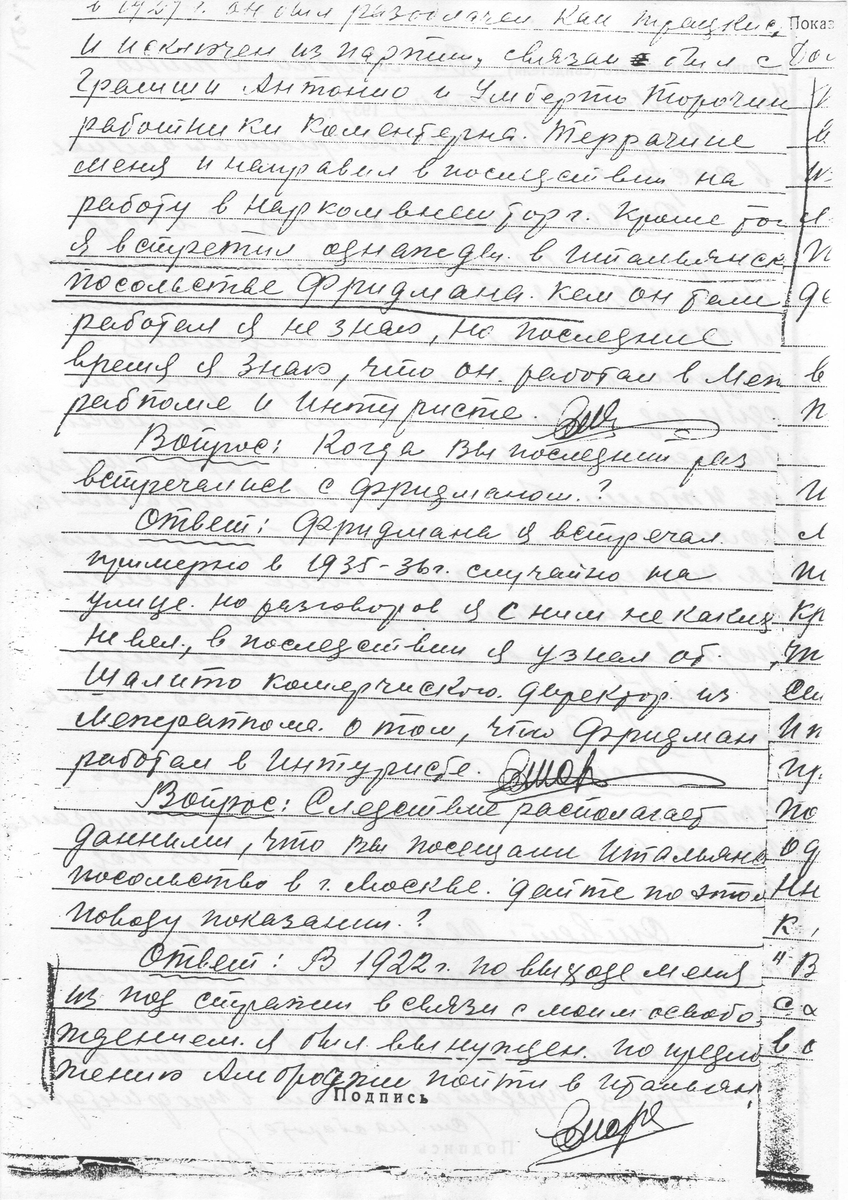 в 1927 г. он был разоблачен как троцкис
и исключен из партии, связан был с
Грамши Антонио и Умберто Торочин
работники коментерна. Террачине
меня и направил в последствии на
работу в наркомвнешторг. Кроме тог
я встретил однажды в Итальянск
посольстве Фридмана. Кем он там
работал я не знаю, но последние
время я знаю, что он работал в Меж
рабпоме и Интуристе.
Вопрос: Когда Вы последний раз
встречались с Фридманом.?
Ответ: Фридмана я встречал
примерно в 1935-36г. случайно на
улице. но разговоров я с ним не каких
не вел, в последствии я узнал от
Шалито комерчиского директор из
Межрапрома о том, что Фридман
работал в Интуристе.
Вопрос: Следствие располагает
данними, что Вы посещали Итальянс
посольство в г. Москве. дайте по этом
поводу показании.?
Ответ: В 1922 г. по выходе меня
из под стражи в связи с моим освобо
ждением я был вынужден по предло
жению Амороджи пойти в Итальян
Подпись
Показ